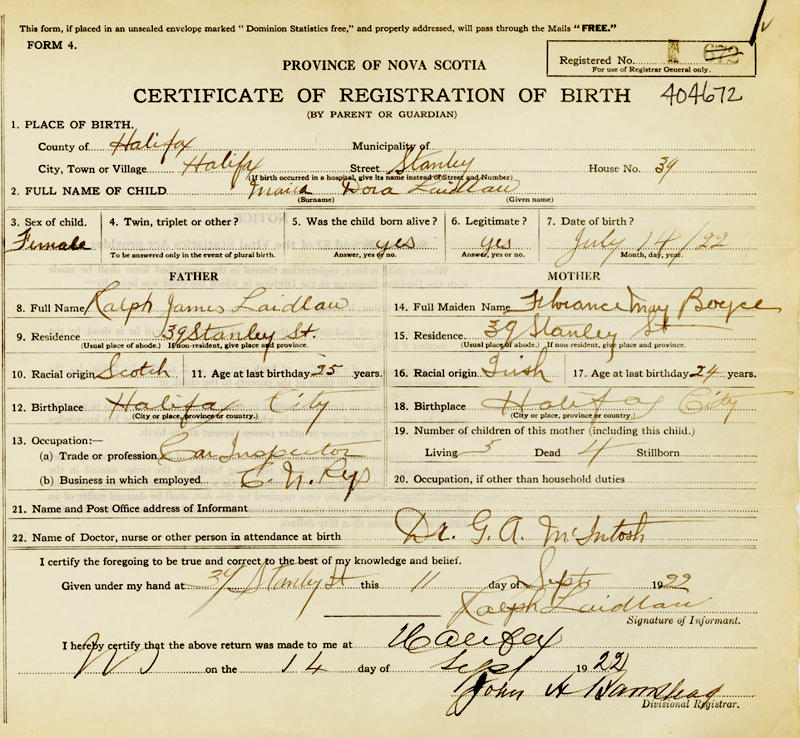 This form, if placed in an unsealed envelope marked "Dominion Statistics free," and properly addressed, will pass through the Mails "FREE."
FORM 4.
Registered No. 672
For use of Registrar General only.
PROVINCE OF NOVA SCOTIA
CERTIFICATE OF REGISTRATION OF BIRTH 404672
(BY PARENT OR GUARDIAN)
1. PLACE OF BIRTH.
County of Halifax Municipality of
City, Town or Village Halifax Street Stanley House No. 39
(If birth occurred in a hospital, give its name instead of Street and Number)
2. FULL NAME OF CHILD Dora Laidlaw
(Surname) (Given name)
3. Sex of child. 4. Twin, triplet or other? 5. Was the child born alive? 6. Legitimate? 7. Date of birth?
Female yes yes July 14/22
To be answered only in the event of plural birth. Answer, yes or no. Answer, yes or no. Month, day, year.
FATHER MOTHER
8. Full Name Ralph James Laidlaw 14. Full Maiden Name Florance May Boyce
9. Residence 39 Stanley St. 15. Residence 39 Stanley St
(Usual place of abode.) If non-resident, give place and province. (Usual place of abode.) If non-resident, give place and province.
10. Racial origin Scotch 11. Age at last birthday 25 years. 16. Racial origin Irish 17. Age at last birthday 24 years.
12. Birthplace Halifax City 18. Birthplace Halifax City
(City or place, province or country.) (City or place, province or country.)
13. Occupation:— 19. Number of children of this mother (including this child.)
(a) Trade or profession Car Inspector Living 5 Dead 4 Stillborn
(b) Business in which employed C. N. Rys 20. Occupation, if other than household duties
21. Name and Post Office address of Informant
22. Name of Doctor, nurse or other person in attendance at birth Dr. G. A. McIntosh
I certify the foregoing to be true and correct to the best of my knowledge and belief.
Given under my hand at 39 Stanly St this 11 day of Sept 1922
Ralph Laidlaw
Signature of Informant.
I hereby certify that the above return was made to me at Halifax
NS on the 14 day of Sept 1922
John A
Divisional Registrar.